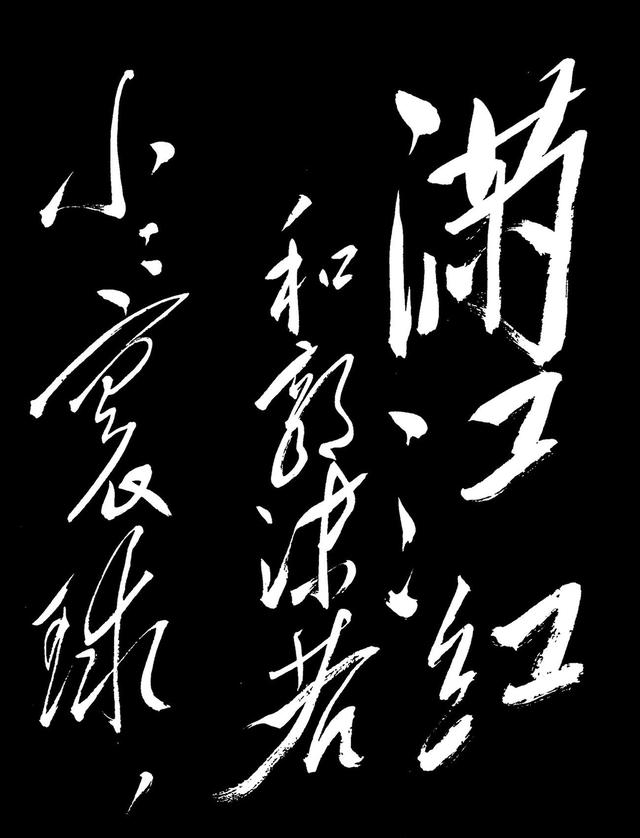 满江红
和郭沫若
小〻寰球，